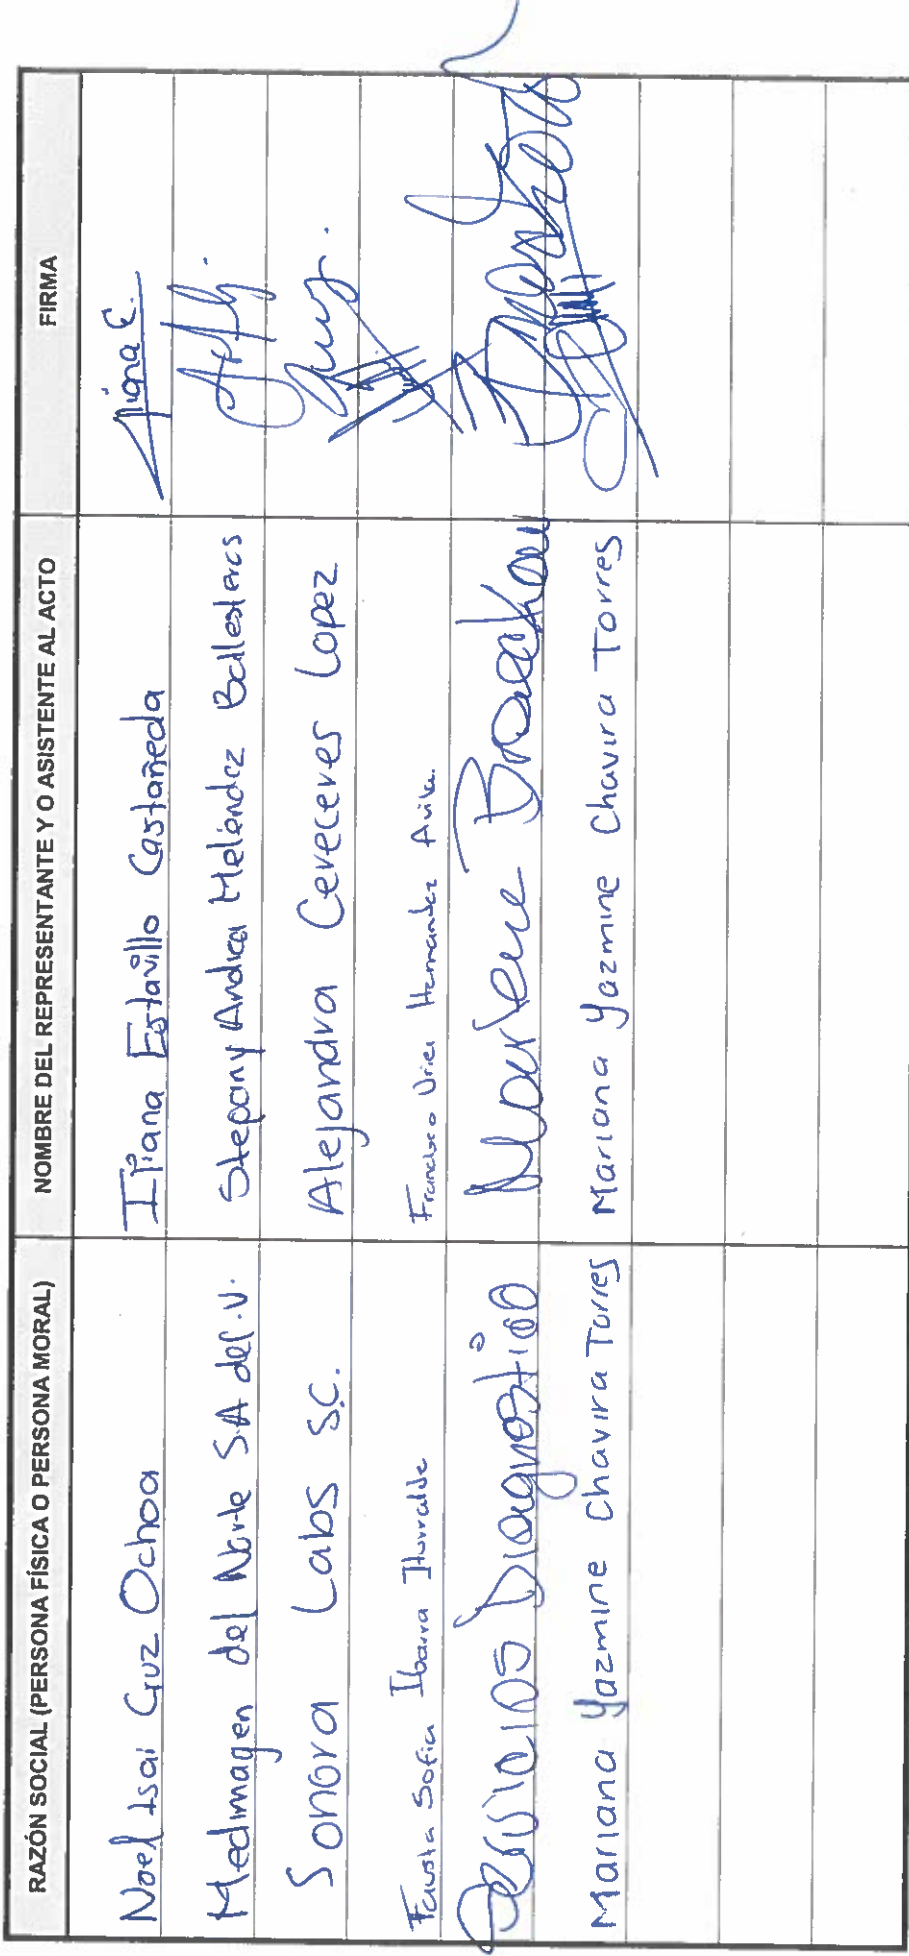 RAZÓN SOCIAL (PERSONA FÍSICA O PERSONA MORAL) NOMBRE DEL REPRESENTANTE Y O ASISTENTE AL ACTO FIRMA
Noel Isai Cruz Ochoa Iriana Estavillo Castañeda Iriana E.
Medimagen del Norte S.A de C.V. Stepany Andrea Meléndez Ballesteros
Sonora Labs S.C. Alejandra Cereceres Lopez
Fausta Sofia Ibarra Iturralde Francisco Uriel Hernandez Avila.
Servicios Diagnostico Marlene
Mariana Yazmine Chavira Torres Mariana Yazmine Chavira Torres